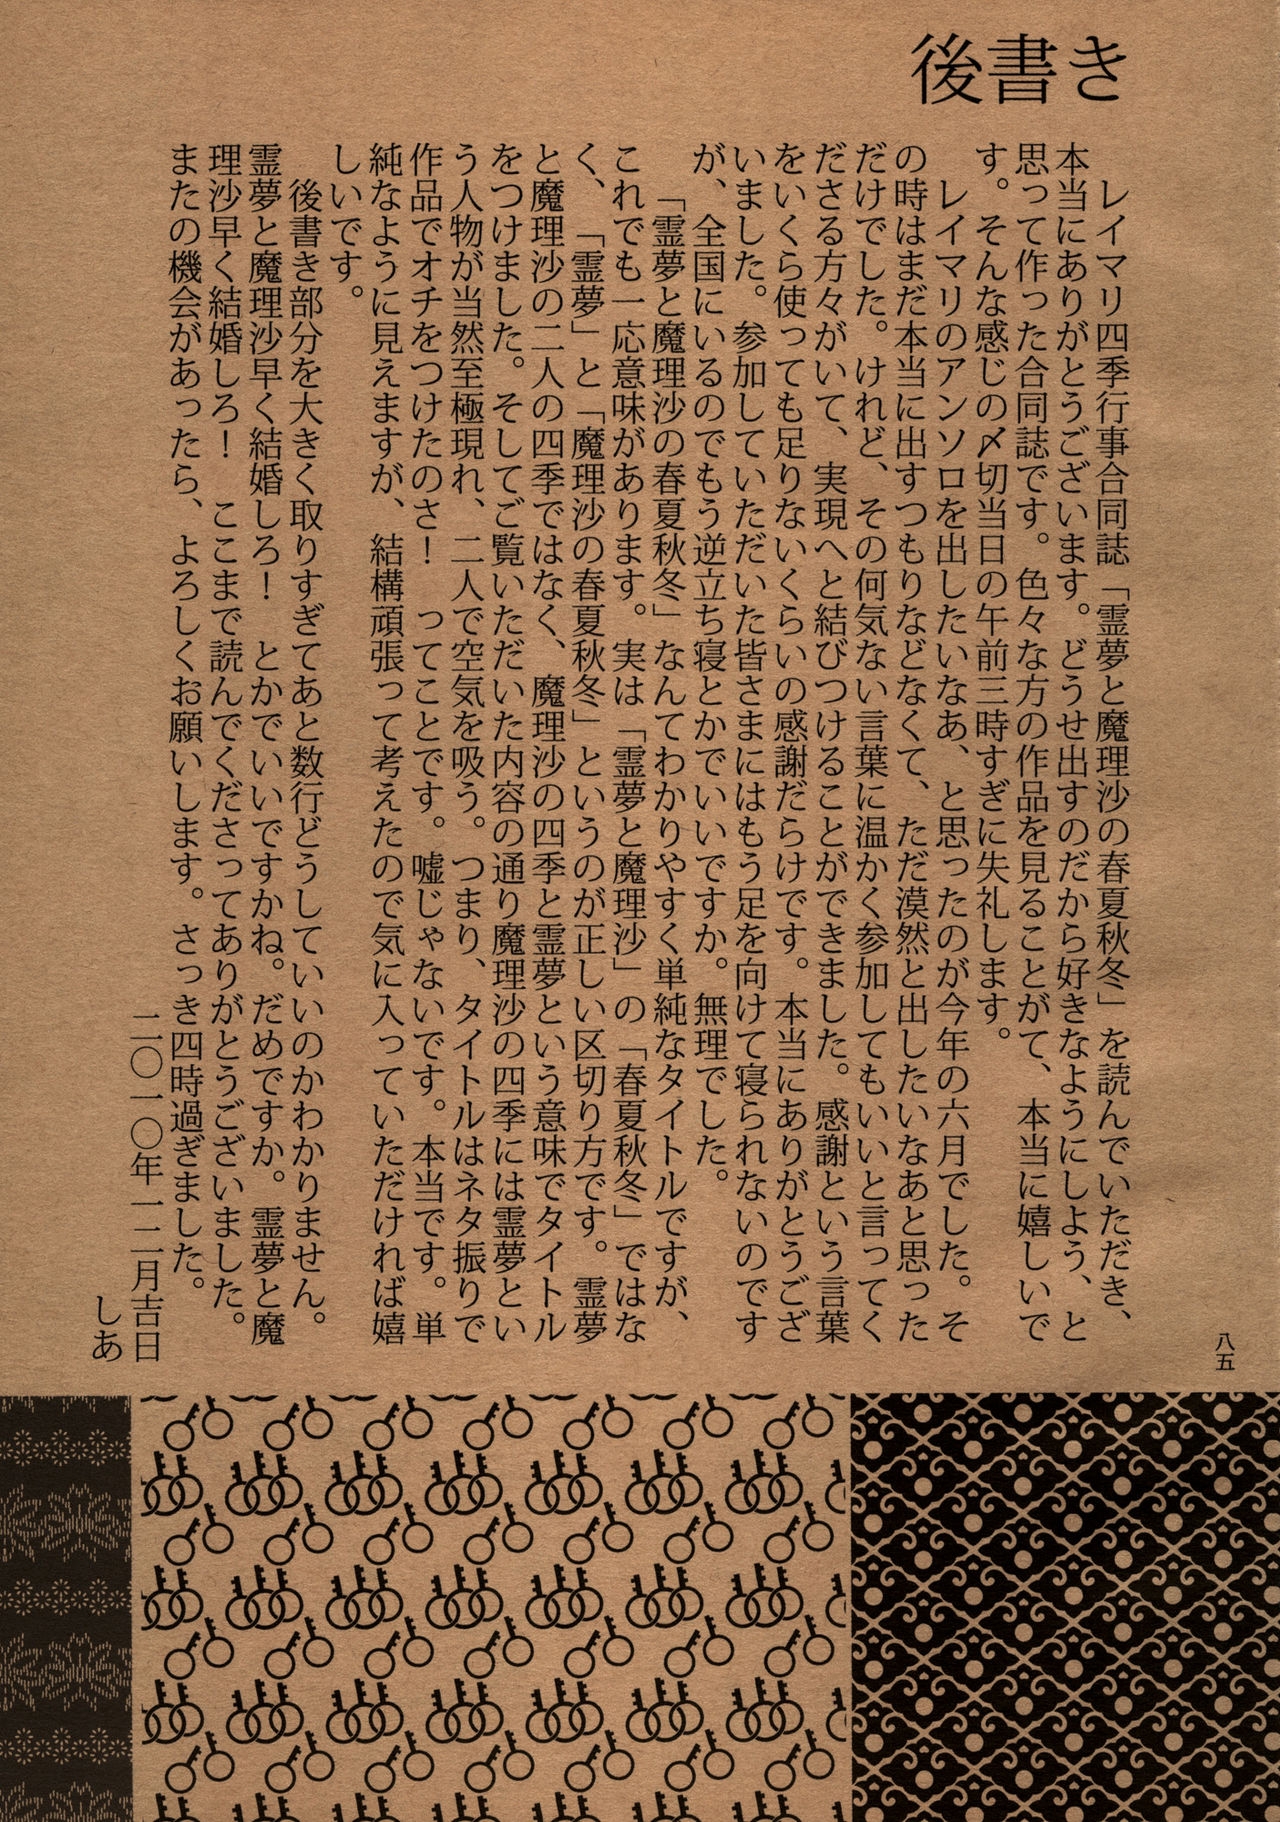 後書き
　レイマリ四季行事合同誌「霊夢と魔理沙の春夏秋冬」を読んでいただき、
本当にありがとうございます。どうせ出すのだから好きなようにしよう、と
思って作った合同誌です。色々な方の作品を見ることがて、本当に嬉しいで
す。そんな感じの〆切当日の午前三時すぎに失礼します。
　レイマリのアンソロを出したいなあ、と思ったのが今年の六月でした。そ
の時はまだ本当に出すつもりなどなくて、ただ漠然と出したいなあと思った
だけでした。けれど、その何気ない言葉に温かく参加してもいいと言ってく
ださる方々がいて、実現へと結びつけることができました。感謝という言葉
をいくら使っても足りないくらいの感謝だらけです。本当にありがとうござ
いました。参加していただいた皆さまにはもう足を向けて寝られないのです
が、全国にいるのでもう逆立ち寝とかでいいですか。無理でした。
　「霊夢と魔理沙の春夏秋冬」なんてわかりやすく単純なタイトルですが、
これでも一応意味があります。実は「霊夢と魔理沙」の「春夏秋冬」ではな
く、「霊夢」と「魔理沙の春夏秋冬」というのが正しい区切り方です。霊夢
と魔理沙の二人の四季ではなく、魔理沙の四季と霊夢という意味でタイトル
をつけました。そしてご覧いただいた内容の通り魔理沙の四季には霊夢とい
う人物が当然至極現れ、二人で空気を吸う。つまり、タイトルはネタ振りで
作品でオチをつけたのさ！　ってことです。嘘じゃないです。本当です。単
純なように見えますが、結構頑張って考えたので気に入っていただければ嬉
しいです。
　後書き部分を大きく取りすぎてあと数行どうしていいのかわかりません。
霊夢と魔理沙早く結婚しろ！　とかでいいですかね。だめですか。霊夢と魔
理沙早く結婚しろ！　ここまで読んでくださってありがとうございました。
またの機会があったら、よろしくお願いします。さっき四時過ぎました。
二〇一〇年一二月吉日
しあ
八五